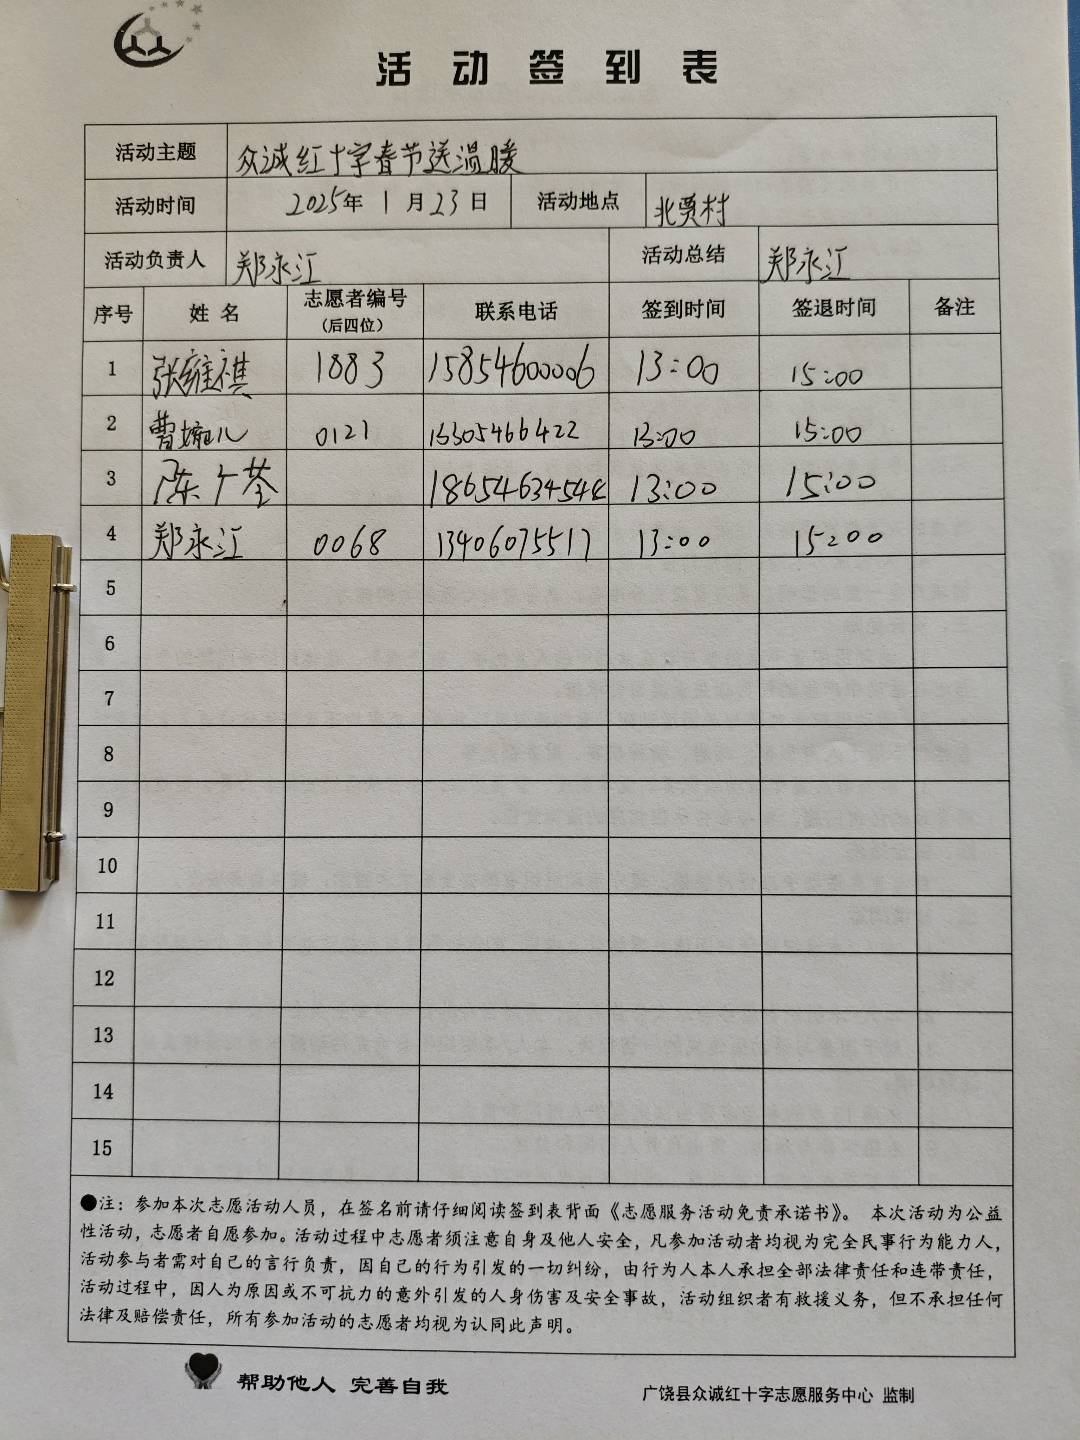 活动签到表
活动主题 众诚红十字春节送温暖
活动时间 2025年1月23日 活动地点 北贾村
活动负责人 郑永江 活动总结 郑永江
序号 姓名 志愿者编号（后四位） 联系电话 签到时间 签退时间 备注
1 张雍祺 1883 15854600006 13:00 15:00
2 0121 13305466422 13:00 15:00
3 13:00 15:00
4 郑永江 0068 13406075517 13:00 15:00
5
6
7
8
9
10
11
12
13
14
15
●注：参加本次志愿活动人员，在签名前请仔细阅读签到表背面《志愿服务活动免责承诺书》。 本次活动为公益
性活动，志愿者自愿参加。活动过程中志愿者须注意自身及他人安全，凡参加活动者均视为完全民事行为能力人，
活动参与者需对自己的言行负责，因自己的行为引发的一切纠纷，由行为人本人承担全部法律责任和连带责任，
活动过程中，因人为原因或不可抗力的意外引发的人身伤害及安全事故，活动组织者有救援义务，但不承担任何
法律及赔偿责任，所有参加活动的志愿者均视为认同此声明。
帮助他人 完善自我
广饶县众诚红十字志愿服务中心 监制